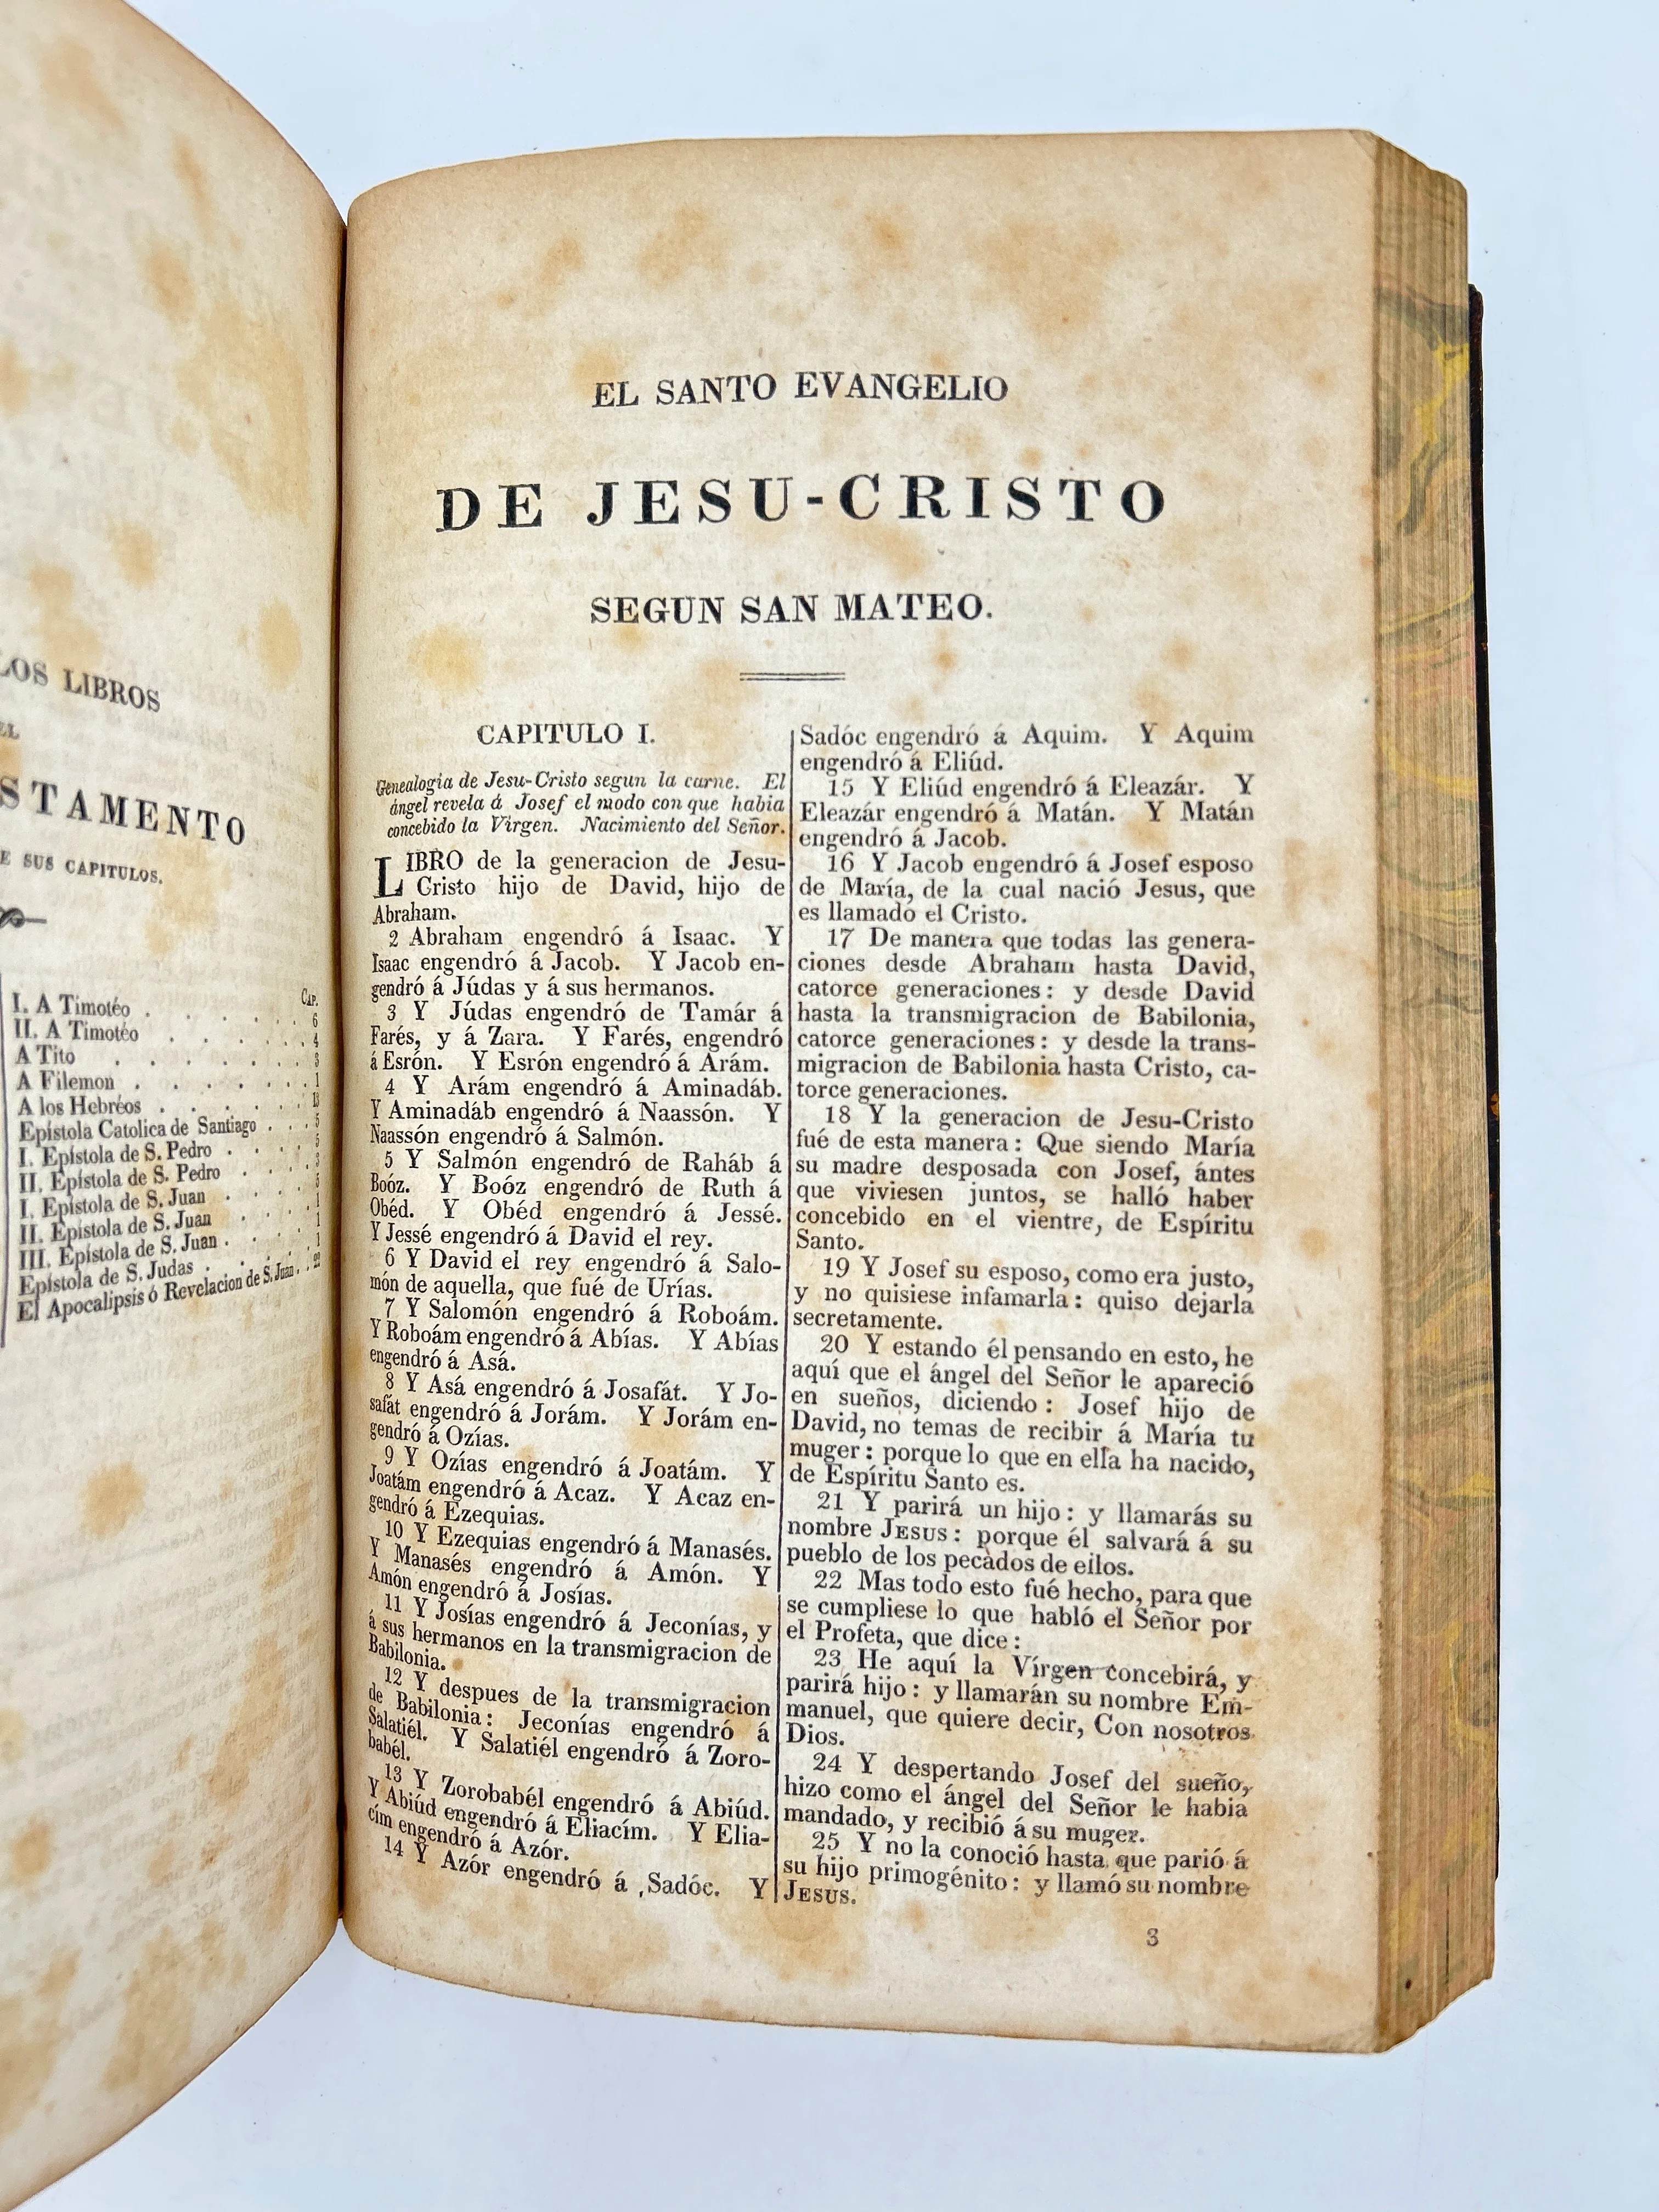 LOS LIBROS
EL
STAMENTO
E SUS CAPITULOS.
CAP.
I. A Timotéo . . . . . . 6
II. A Timotéo . . . . . . 4
A Tito . . . . . . 3
A Filemon . . . . . . 1
A los Hebréos . . . . . . 13
Epístola Catolica de Santiago . . . 5
I. Epístola de S. Pedro . . . . 5
II. Epístola de S. Pedro . . . . 3
I. Epístola de S. Juan . . . . 5
II. Epístola de S. Juan . . . . 1
III. Epístola de S. Juan . . . . 1
Epístola de S. Judas . . . . 1
El Apocalipsis ó Revelacion de S. Juan . . 22
EL SANTO EVANGELIO
DE JESU-CRISTO
SEGUN SAN MATEO.
CAPITULO I.
Genealogia de Jesu-Cristo segun la carne. El
ángel revela á Josef el modo con que habia
concebido la Virgen. Nacimiento del Señor.
LIBRO de la generacion de Jesu-
Cristo hijo de David, hijo de
Abraham.
2 Abraham engendró á Isaac. Y
Isaac engendró á Jacob. Y Jacob en-
gendró á Júdas y á sus hermanos.
3 Y Júdas engendró de Tamár á
Farés, y á Zara. Y Farés, engendró
á Esrón. Y Esrón engendró á Arám.
4 Y Arám engendró á Aminadáb.
Y Aminadáb engendró á Naassón. Y
Naassón engendró á Salmón.
5 Y Salmón engendró de Raháb á
Boóz. Y Boóz engendró de Ruth á
Obéd. Y Obéd engendró á Jessé.
Y Jessé engendró á David el rey.
6 Y David el rey engendró á Salo-
món de aquella, que fué de Urías.
7 Y Salomón engendró á Roboám.
Y Roboám engendró á Abías. Y Abías
engendró á Asá.
8 Y Asá engendró á Josafát. Y Jo-
safát engendró á Jorám. Y Jorám en-
gendró á Ozías.
9 Y Ozías engendró á Joatám. Y
Joatám engendró á Acaz. Y Acaz en-
gendró á Ezequias.
10 Y Ezequias engendró á Manasés.
Y Manasés engendró á Amón. Y
Amón engendró á Josías.
11 Y Josías engendró á Jeconías, y
á sus hermanos en la transmigracion de
Babilonia.
12 Y despues de la transmigracion
de Babilonia: Jeconías engendró á
Salatiél. Y Salatiél engendró á Zoro-
babél.
13 Y Zorobabél engendró á Abiúd.
Y Abiúd engendró á Eliacím. Y Elia-
cím engendró á Azór.
14 Y Azór engendró á Sadóc. Y
Sadóc engendró á Aquim. Y Aquim
engendró á Eliúd.
15 Y Eliúd engendró á Eleazár. Y
Eleazár engendró á Matán. Y Matán
engendró á Jacob.
16 Y Jacob engendró á Josef esposo
de María, de la cual nació Jesus, que
es llamado el Cristo.
17 De manera que todas las genera-
ciones desde Abraham hasta David,
catorce generaciones: y desde David
hasta la transmigracion de Babilonia,
catorce generaciones: y desde la trans-
migracion de Babilonia hasta Cristo, ca-
torce generaciones.
18 Y la generacion de Jesu-Cristo
fué de esta manera: Que siendo María
su madre desposada con Josef, ántes
que viviesen juntos, se halló haber
concebido en el vientre, de Espíritu
Santo.
19 Y Josef su esposo, como era justo,
y no quisiese infamarla: quiso dejarla
secretamente.
20 Y estando él pensando en esto, he
aquí que el ángel del Señor le apareció
en sueños, diciendo: Josef hijo de
David, no temas de recibir á María tu
muger: porque lo que en ella ha nacido,
de Espíritu Santo es.
21 Y parirá un hijo: y llamarás su
nombre JESUS: porque él salvará á su
pueblo de los pecados de ellos.
22 Mas todo esto fué hecho, para que
se cumpliese lo que habló el Señor por
el Profeta, que dice:
23 He aquí la Vírgen concebirá, y
parirá hijo: y llamarán su nombre Em-
manuel, que quiere decir, Con nosotros
Dios.
24 Y despertando Josef del sueño,
hizo como el ángel del Señor le habia
mandado, y recibió á su muger.
25 Y no la conoció hasta que parió á
su hijo primogénito: y llamó su nombre
JESUS.
3